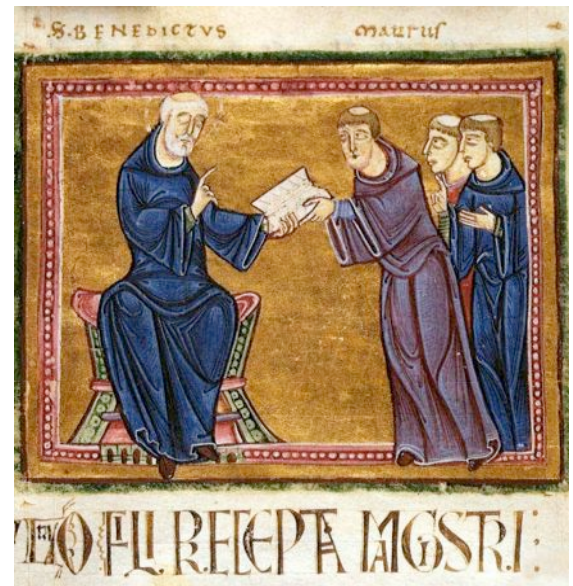 .S. BENEDICTVS
MAURUS
O FILI RECEPTA MAGISTRI: